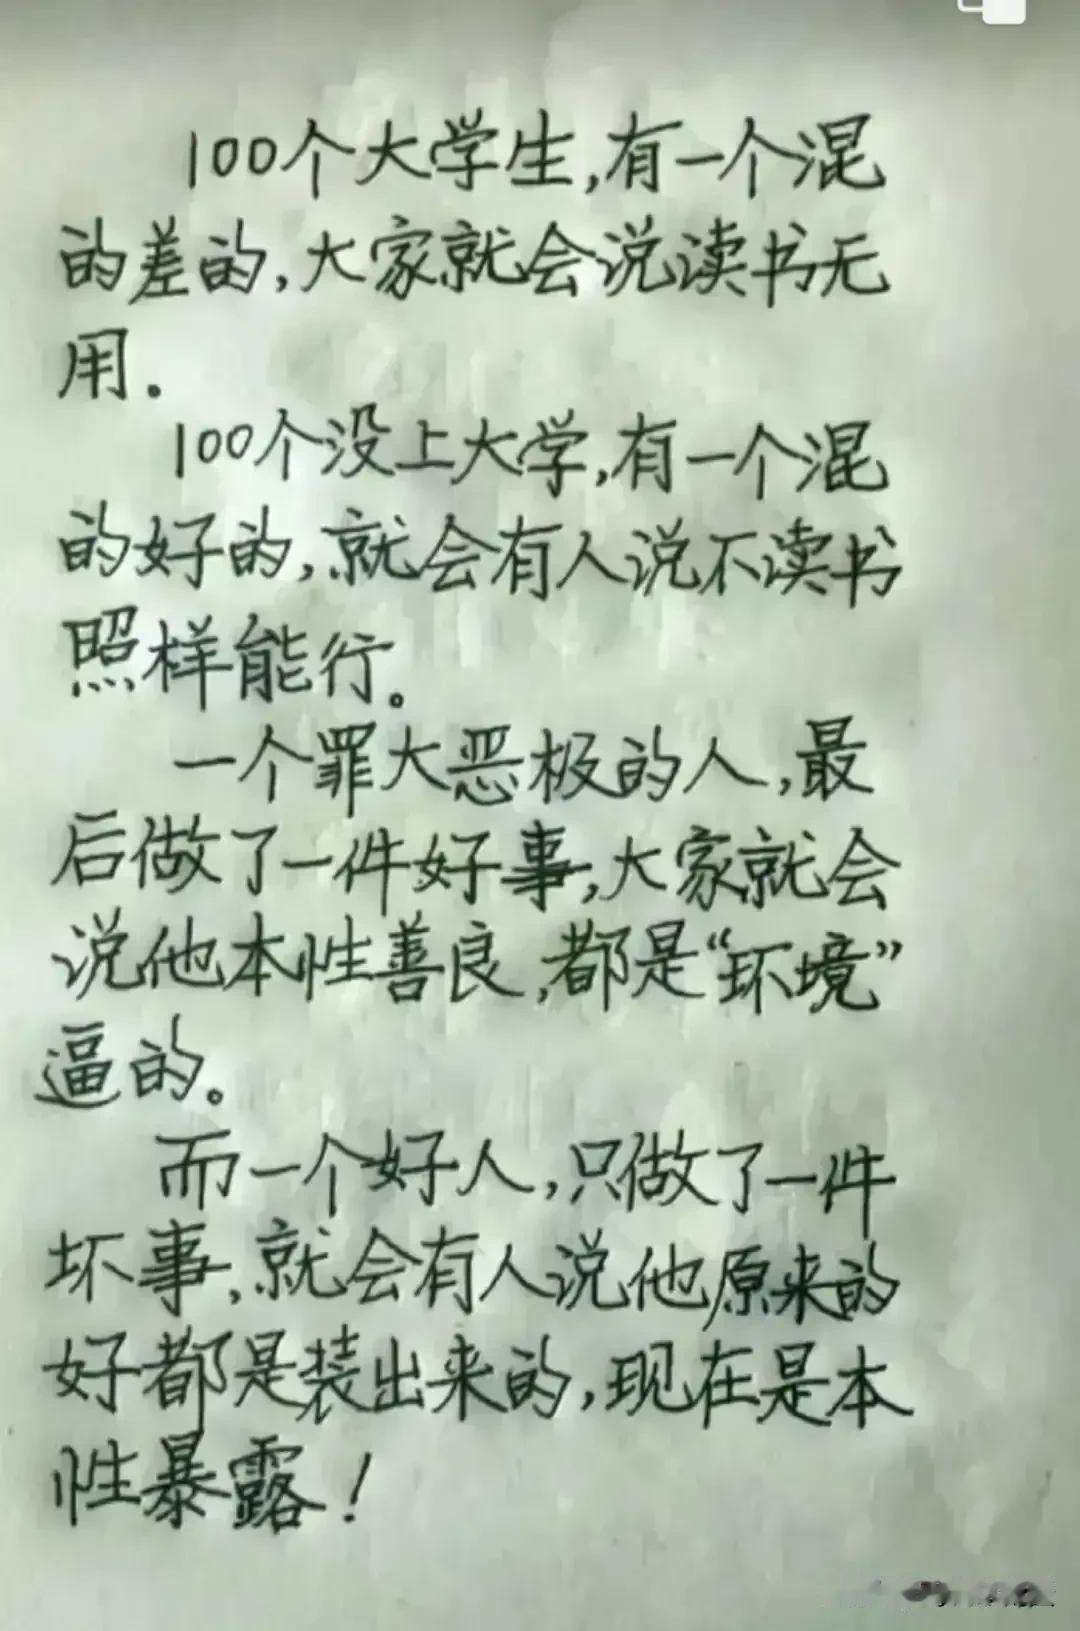 100个大学生,有一个混
的差的,大家就会说读书无
用.
100个没上大学,有一个混
的好的,就会有人说不读书
照样能行。
一个罪大恶极的人,最
后做了一件好事,大家就会
说他本性善良,都是“环境”
逼的。
而一个好人,只做了一件
坏事,就会有人说他原来的
好都是装出来的,现在是本
性暴露!